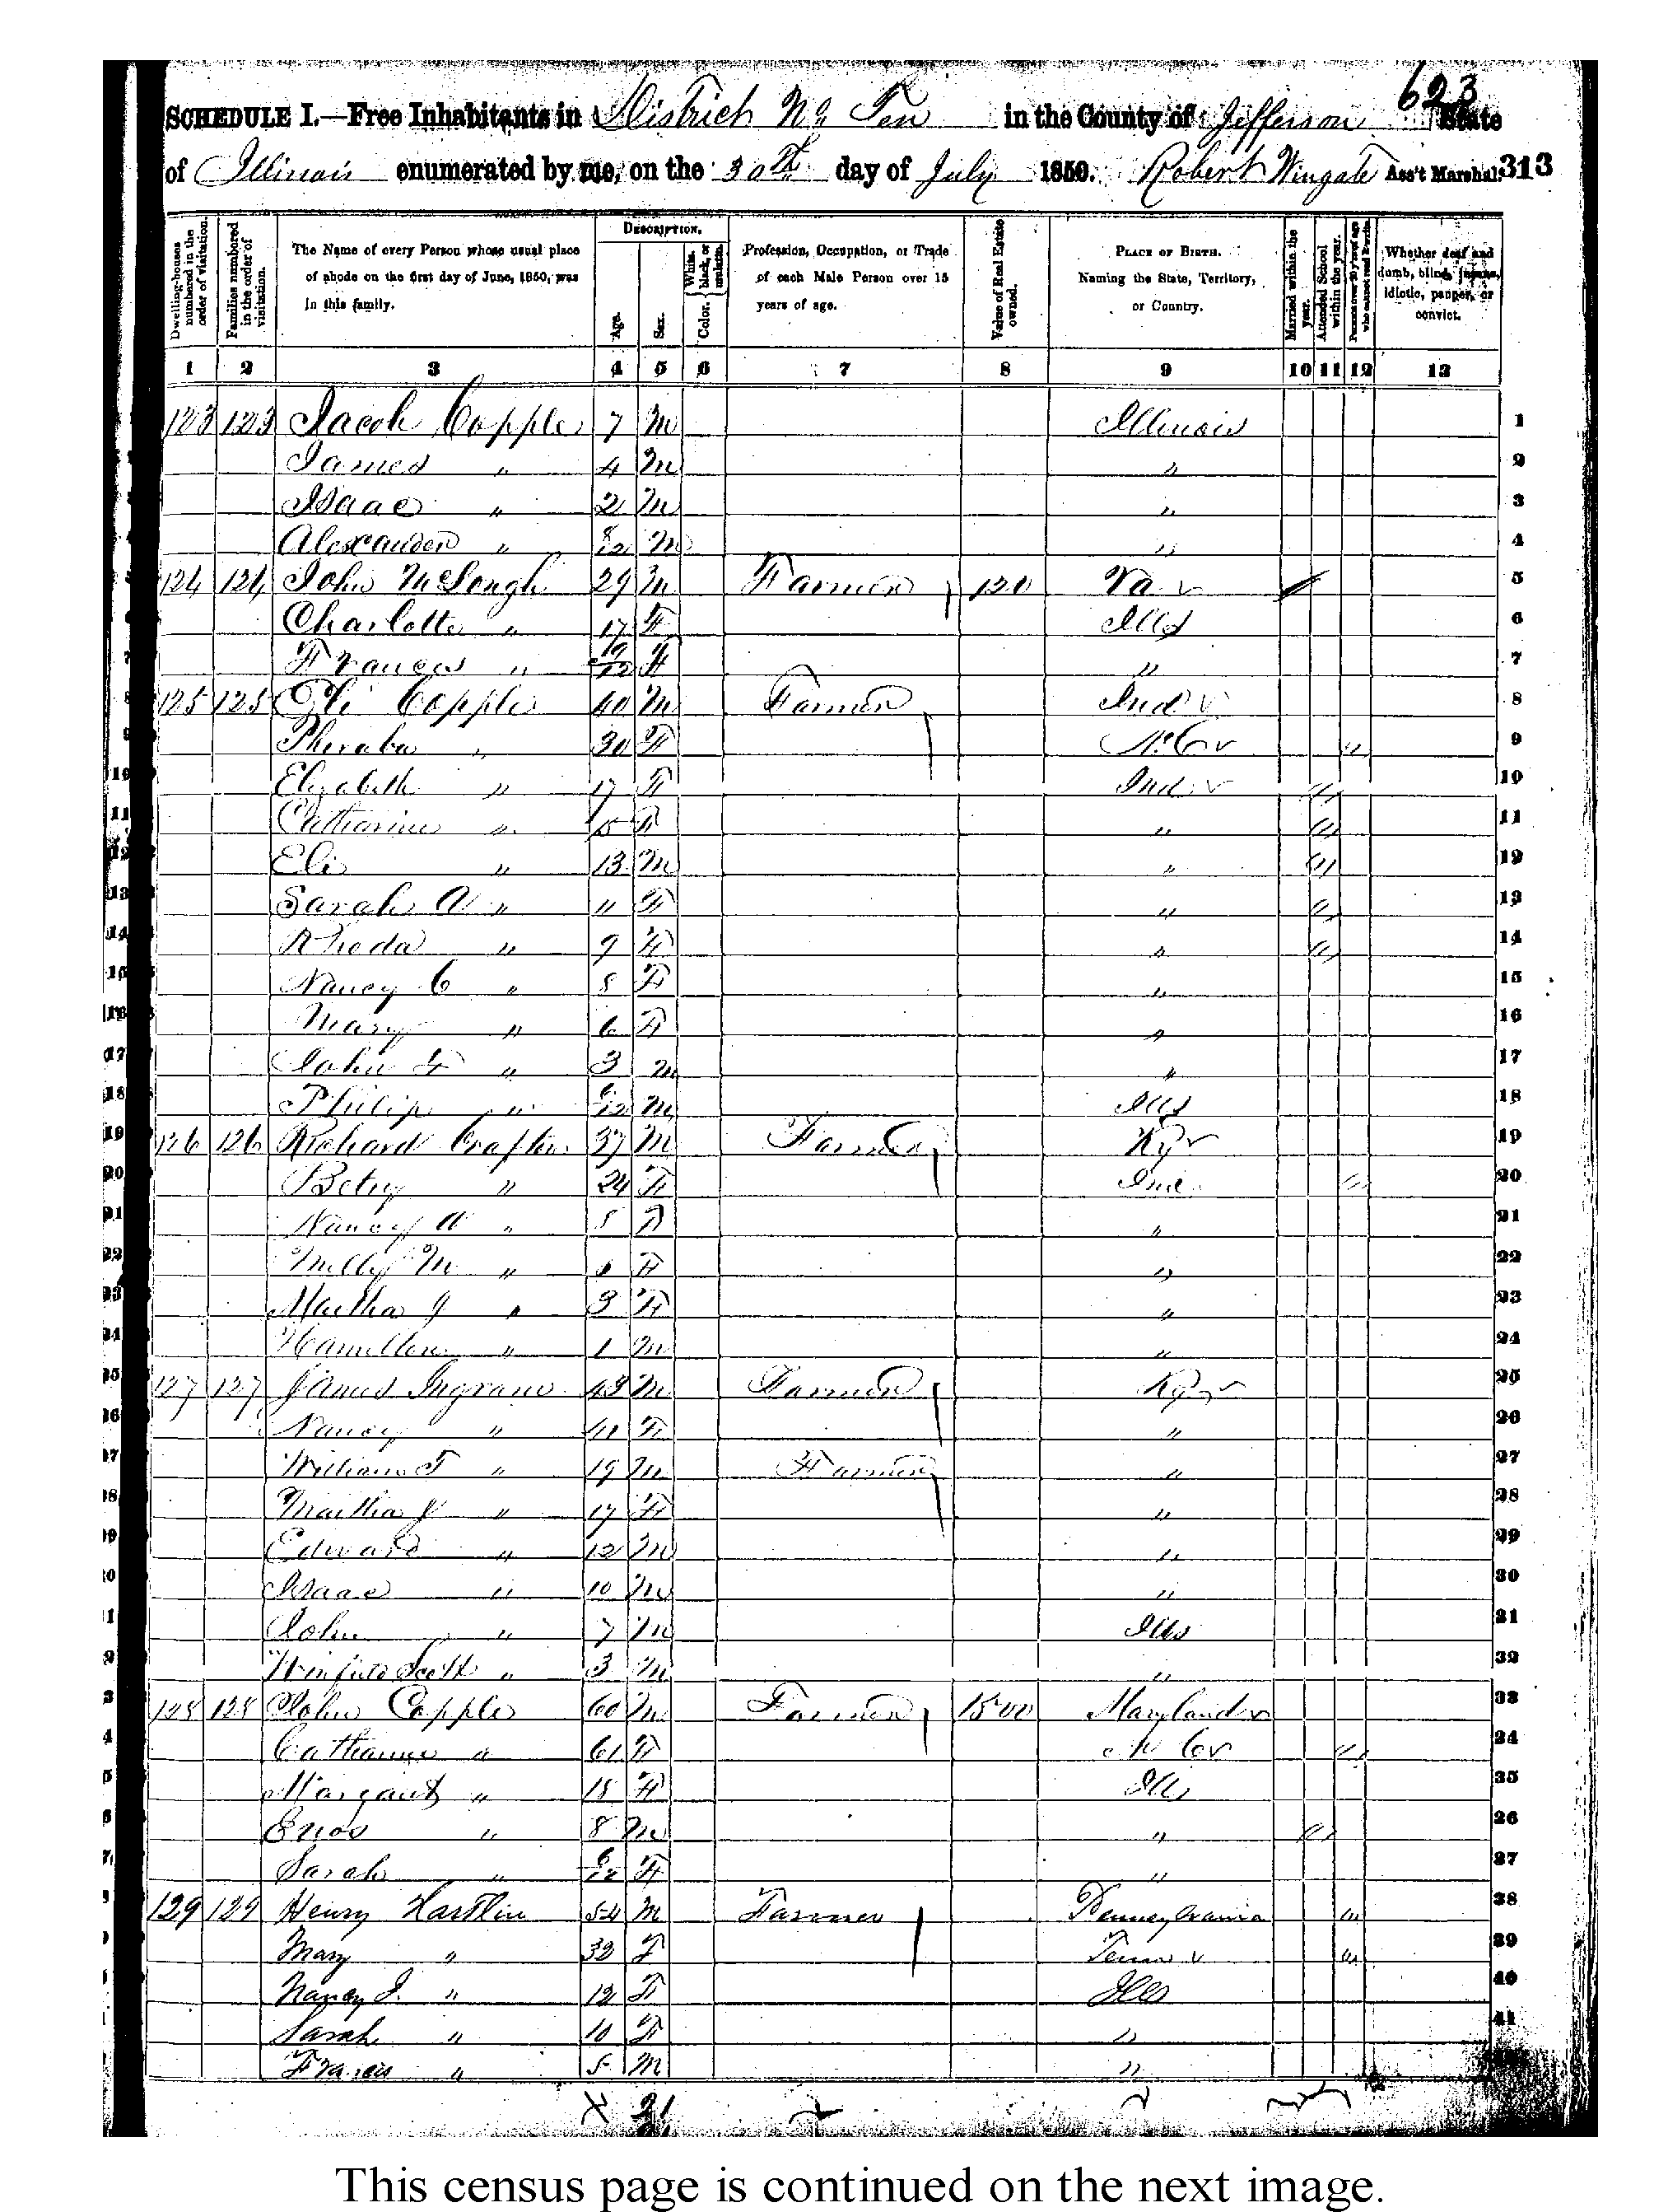 623
SCHEDULE I.—Free Inhabitants in District No Ten in the County of Jefferson State
of Illinois enumerated by me, on the 30th day of July 1850. Robert Wingate Ass't Marshal. 313
Dwelling-houses numbered in the order of visitation.
Families numbered in the order of visitation.
The Name of every Person whose usual place of abode on the first day of June, 1850, was in this family.
DESCRIPTION.
Age.
Sex.
Color. White, black, or mulatto.
Profession, Occupation, or Trade of each Male Person over 15 years of age.
Value of Real Estate owned.
PLACE OF BIRTH. Naming the State, Territory, or Country.
Married within the year.
Attended School within the year.
Persons over 20 y'rs of age who cannot read & write.
Whether deaf and dumb, blind, insane, idiotic, pauper, or convict.
1 2 3 4 5 6 7 8 9 10 11 12 13
123 123 Jacob Copple 7 M Illinois 1
James " 4 M " 2
Isaac " 2 M " 3
Alexander " 8/12 M " 4
124 124 John 29 M Farmer 120 Va 5
Charlotte " 17 F Ills 6
Frances " F " 7
125 125 Eli Copple 40 M Farmer Ind 8
Pheraba " 30 F N.C. " 9
Elizabeth " 17 F Ind " 10
Catharine " 15 F " " 11
Eli " 13 M " " 12
Sarah A " 11 F " " 13
Rhoda " 9 F " " 14
Nancy C " 8 F " 15
Mary " 6 F " 16
John F " 3 M " 17
Philip " 6/12 M Ills 18
126 126 Richard 37 M Farmer Ky 19
Betsy " 24 F Ind " 20
Nancy A " F " 21
Milly M " F " 22
Martha J " 3 F " 23
Hamilton " 1 M " 24
127 127 James Ingram 43 M Farmer Ky 25
Nancy " 41 F " 26
William T " 19 M Farmer " 27
Martha J " 17 F " 28
Edward " 12 M " 29
Isaac " 10 M " 30
John " 7 M Ills 31
Winfield Scott " 3 M " 32
128 128 John Copple 60 M Farmer 1500 Maryland 33
Catharine " 61 F N C " 34
Margaret " 18 F Ills 35
Enos " 8 M " " 36
Sarah " 6/12 F " 37
129 129 Henry 54 M Farmer Pennsylvania " 38
Mary " 32 F Tenn " 39
Nancy J. " 12 F Ills 40
Sarah " 10 F " 41
Francis " 5 M "
This census page is continued on the next image.